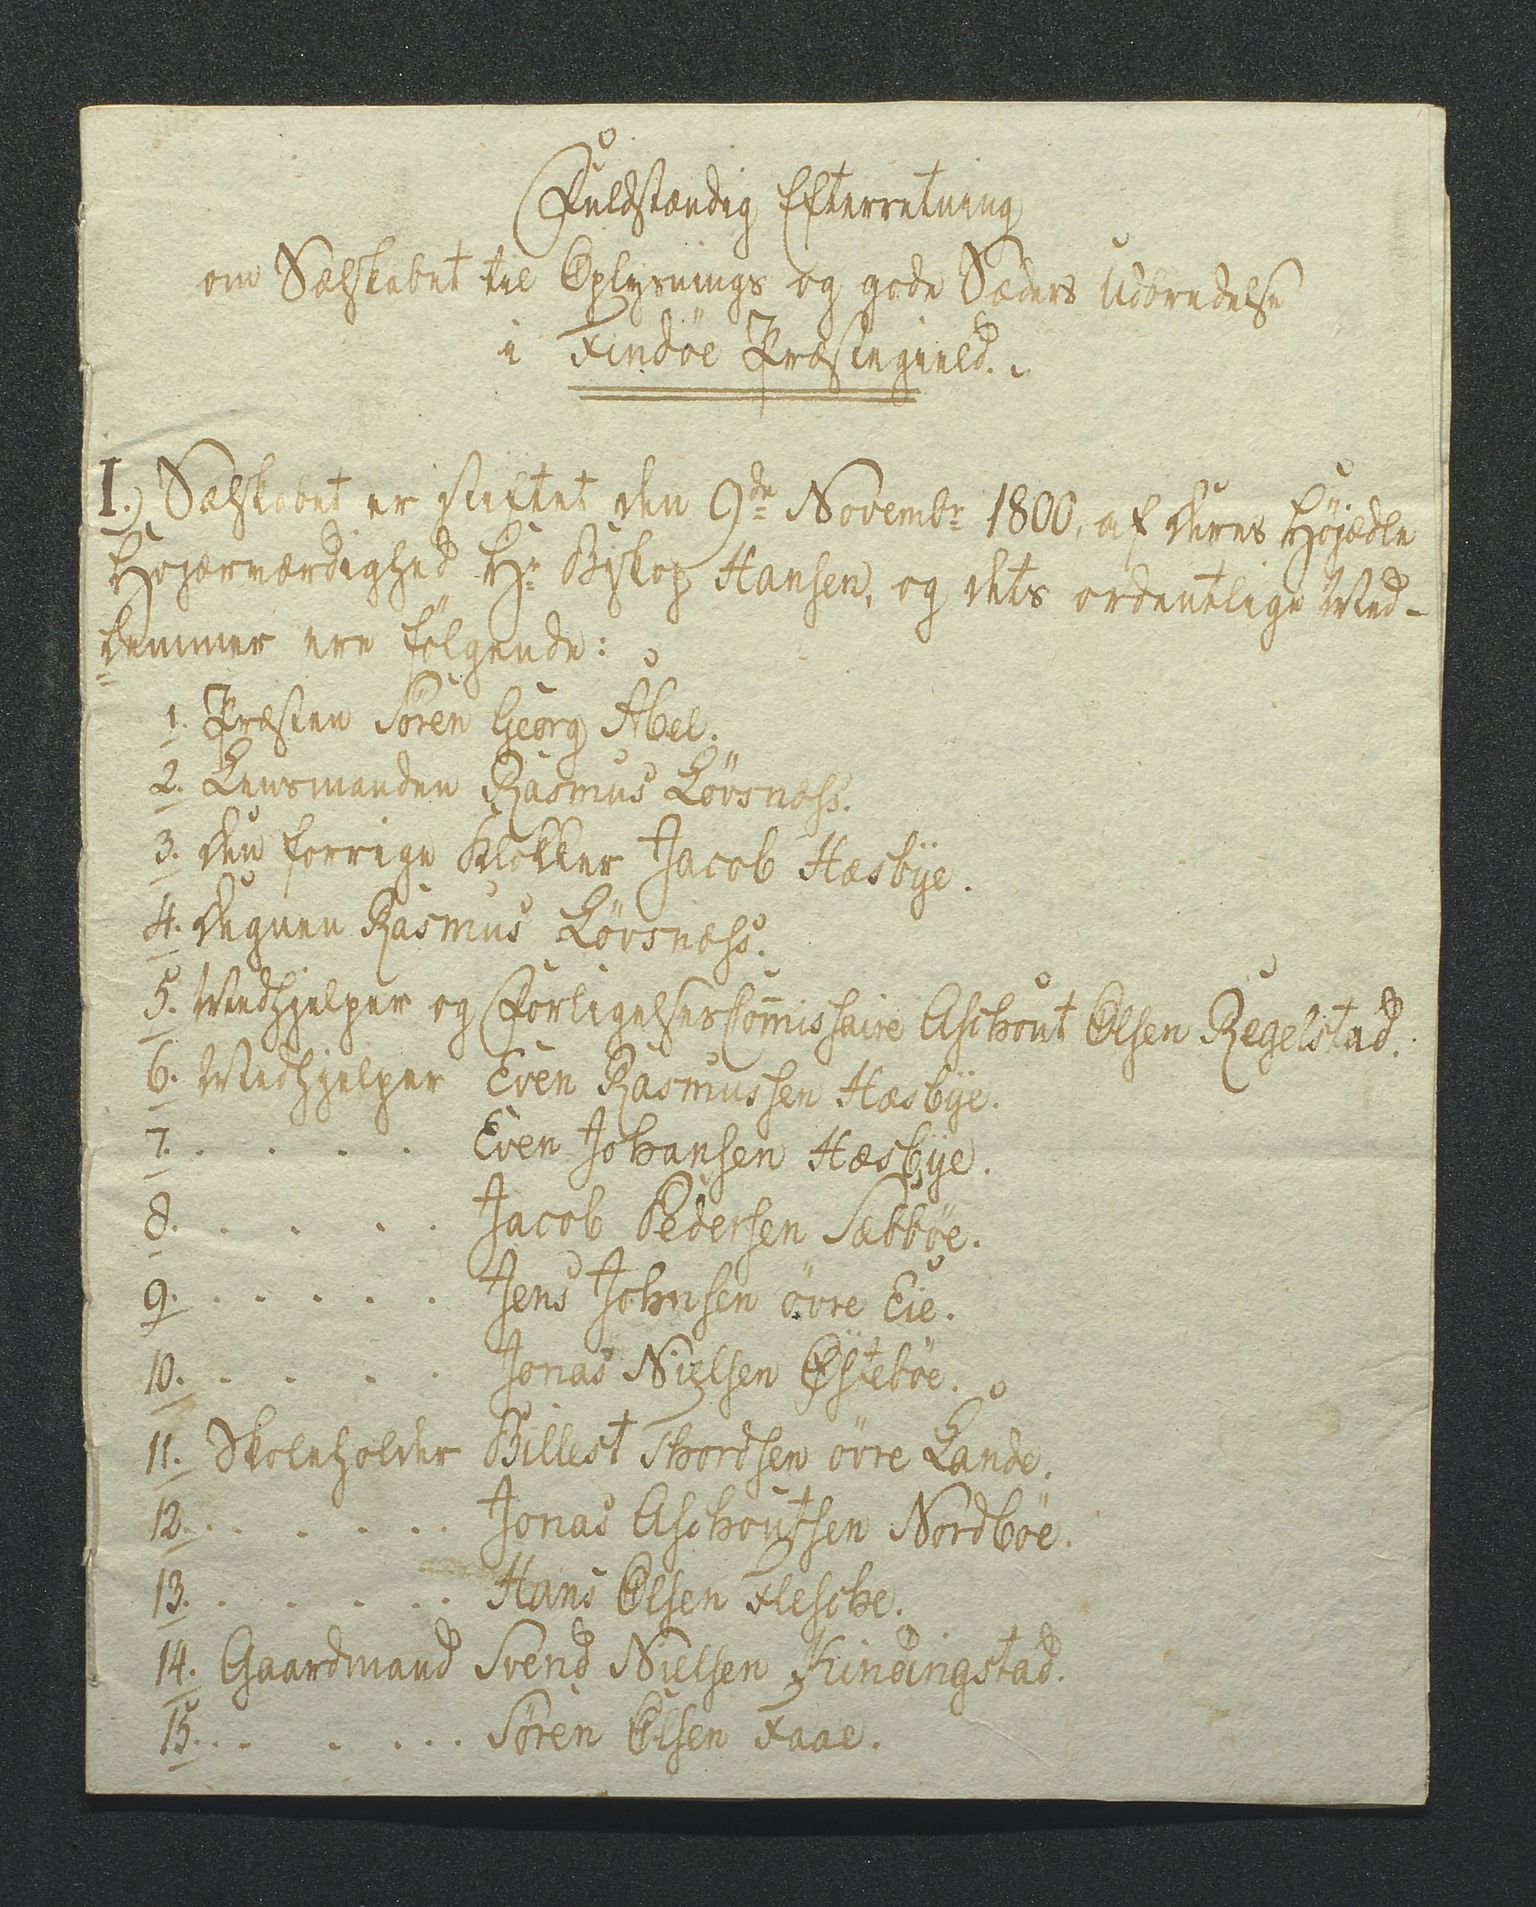 Fuldstændig Efterretning
om Sælskabet til Oplysnings og gode Sæders Udbredelse
i Findöe Præstegield.
I.) Sælskabet er stiftet den 9de Novembr 1800, af deres Höjædle
Højærværdighed Hr Biskop Hansen, og dets ordentlige Med-
lemmer ere fölgende:
1. Præsten Sören Georg Abel.
2. Lensmanden Rasmus Lövsnæss.
3. den forrige Klokker Jacob Hæsbÿe.
4. degnen Rasmus Lövsnæss.
5. Medhjelper og Forligelses Com̄issaire Aschout Olsen Regelstad.
6. Medhjelper Even Rasmussen Hæsbÿe.
7. . . . . Even Johansen Hæsbÿe.
8. . . . . Jacob Pedersen Sæbböe.
9. . . . . . Jens Johnsen övre Eie.
10. . . . . Jonas Nielsen Østeböe.
11. Skoleholder Billest Thordsen övre Lande.
12. . . . . . Jonas Aschoutsen Nordböe.
13. . . . . . Hans Olsen Flesche.
14. Gaardmand Svend Nielsen Kindingstad.
15. . . . . . Sören Olsen Faae.